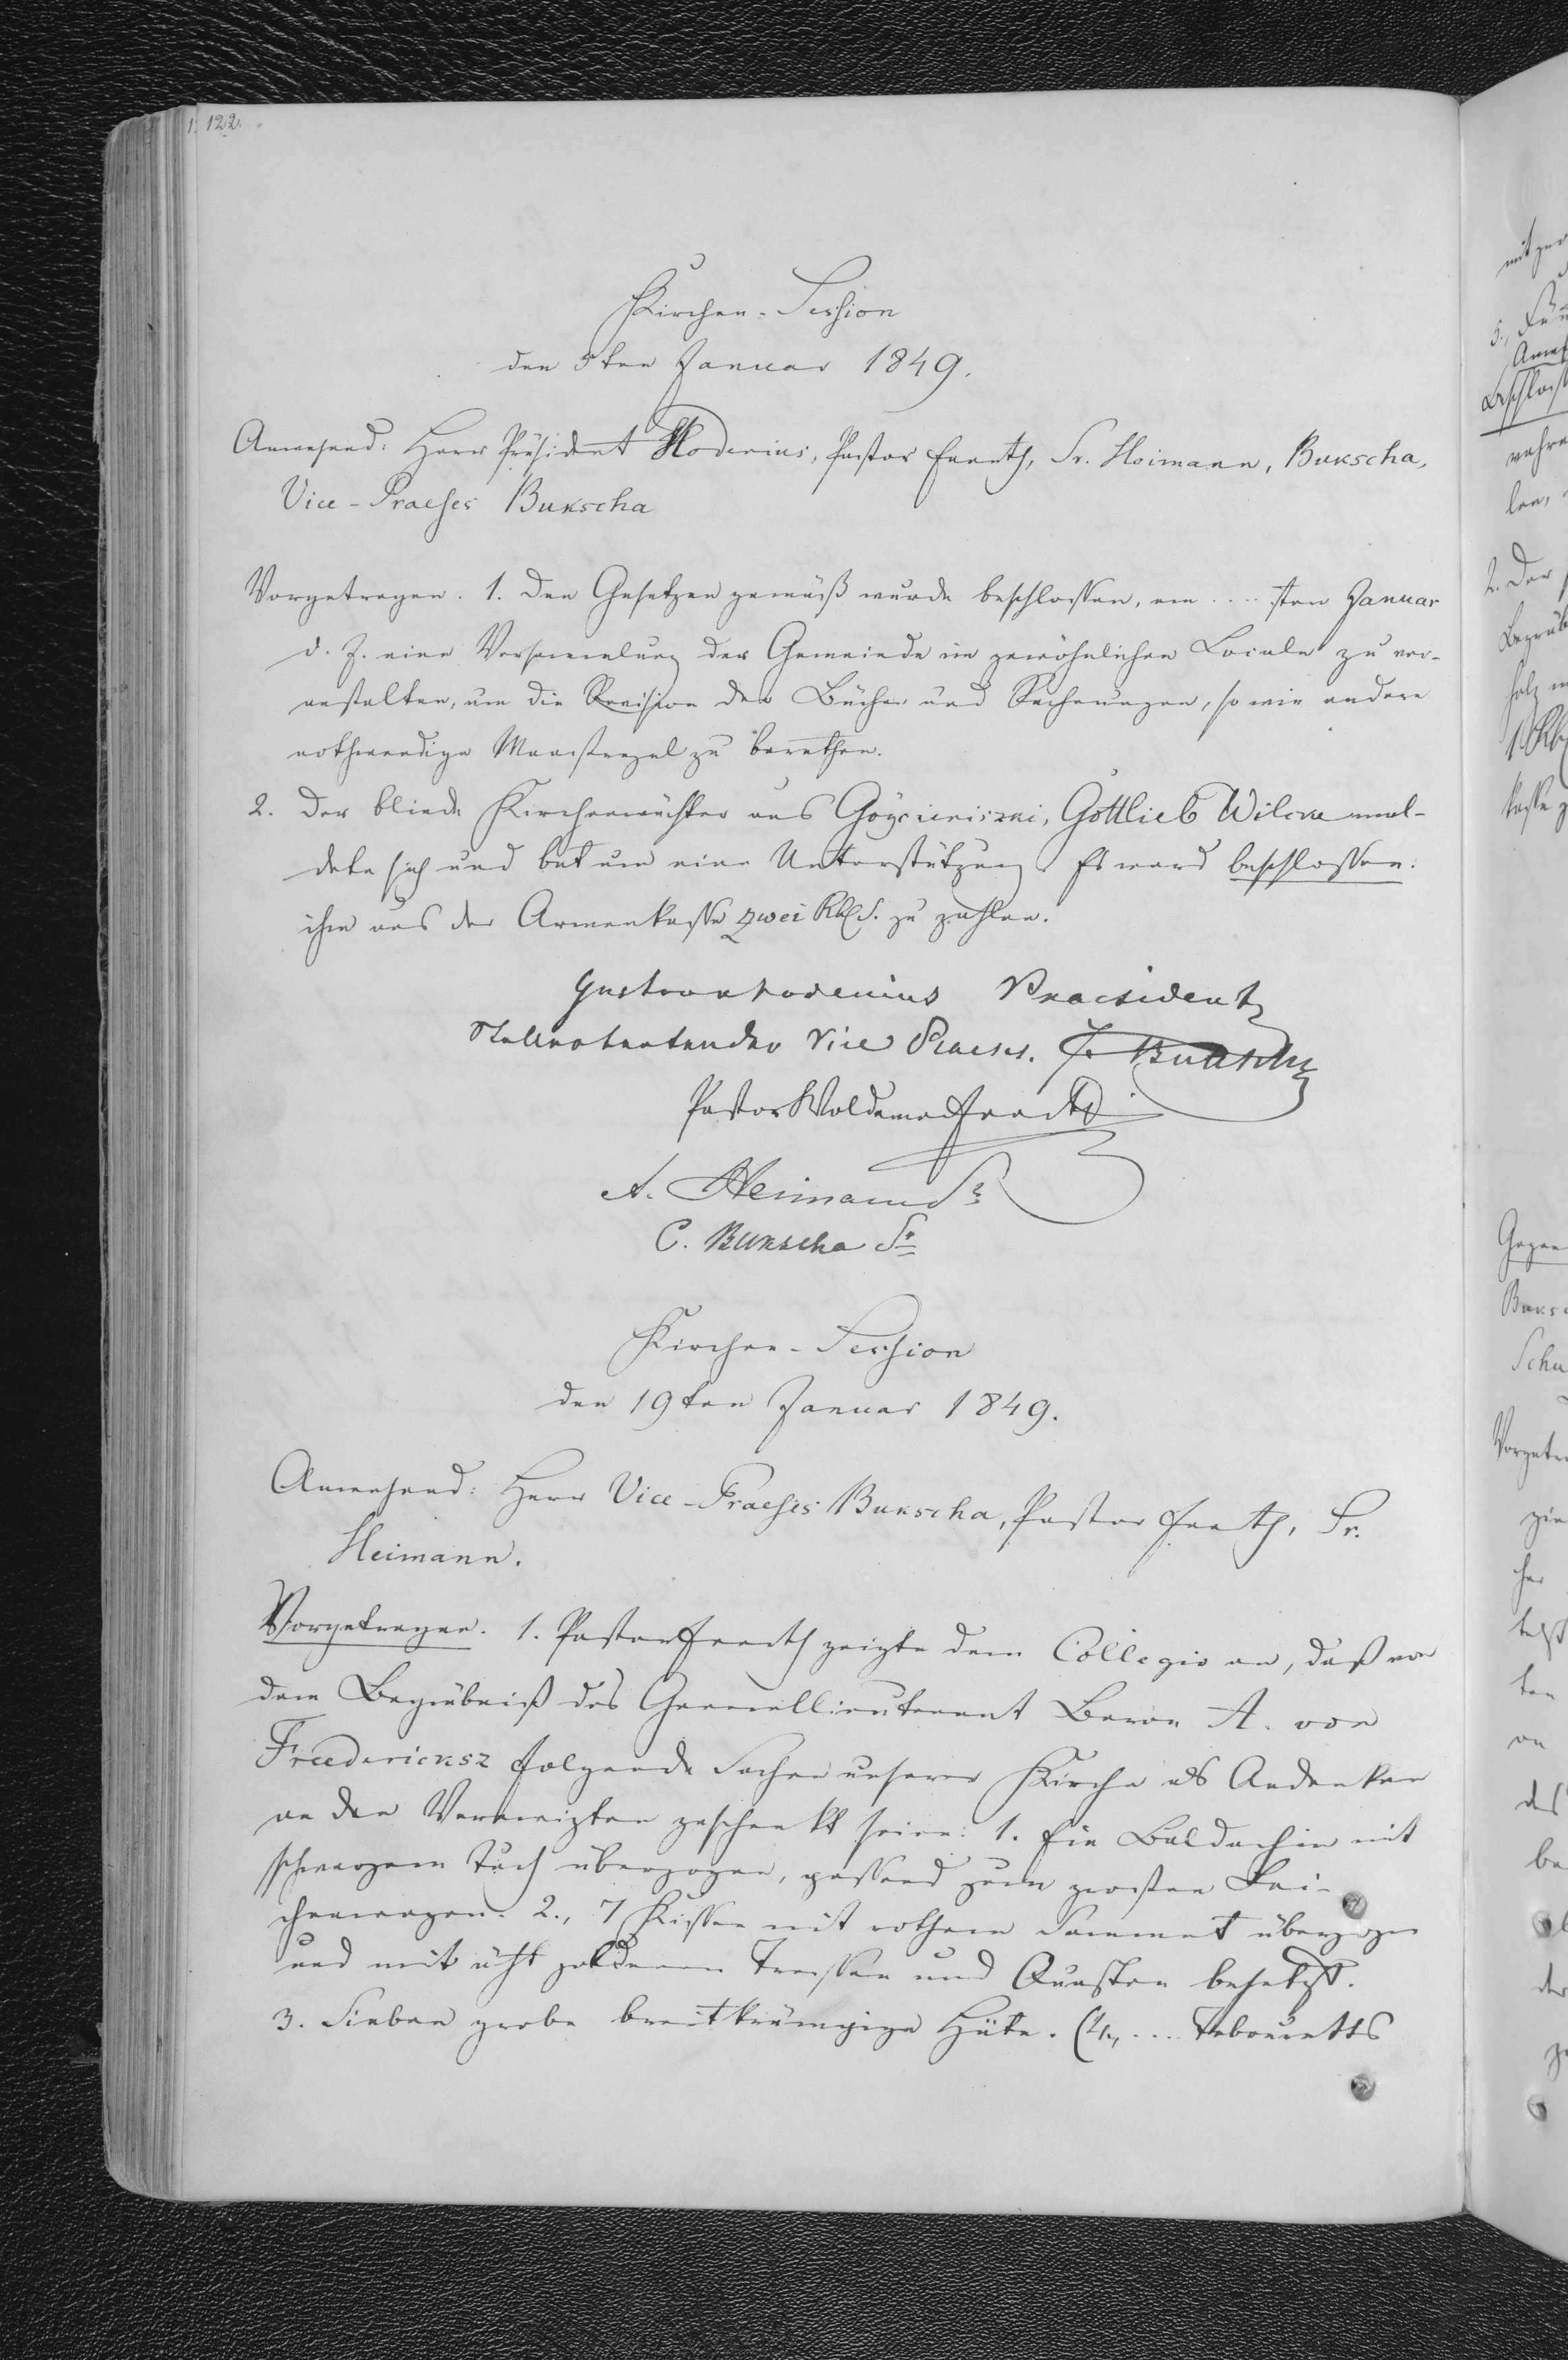 122.
Kirchen-Session
den 5ten Januar 1849.
Anwesend: Herr Präsident Hoderius, Pastor Everth, Sr. Heimann, Bukscha,
Vice-Praeses Bukscha
Vorgetragen. 1. Den Gesetzen gemäß wurde beschlossen, am .... sten Januar
d. J. eine Versammlung der Gemeinde im gewöhnlichen Locale zu ver-
anstalten, um die Revision der Bücher und Rechnungen, so wie andere
nothwendige Maasregel zu berathen.
2. Der blinde Kirchenwächter aus Gottlieb Wilcke mel-
dete sich und bat um eine Unterstützung. Es ward beschlossen:
ihm aus der Armenkasse zwei Rbl S. zu zahlen.
Gustav Hoderius Praesident
Stellvertretender Vice Praeses. J. Bukscha
Pastor Woldemar Everth
A. Heimann Sr
C. Bukscha Sr
Kirchen-Session
den 19ten Januar 1849.
Anwesend: Herr Vice-Praeses Bukscha, Pastor Everth, Sr.
Heimann.
Vorgetragen. 1. Pastor Everth zeigte dem Collegio an, daß von
dem Begräbniß des Generallieutenant Baron A. von
Freedericksz folgende Sachen unserer Kirche als Andenken
an den Verewigten geschenkt seien: 1. Ein Baldachin mit
schwarzem Tuch überzogen, passend zum großen Lei-
chenwagen. 2., 7 Kissen mit rothem Sammet überzogen
und mit ächt goldenen Tressen und Quasten besetzt.
3. Sieben grobe breitkrämpige Hüte. (4., .... Tabouretts